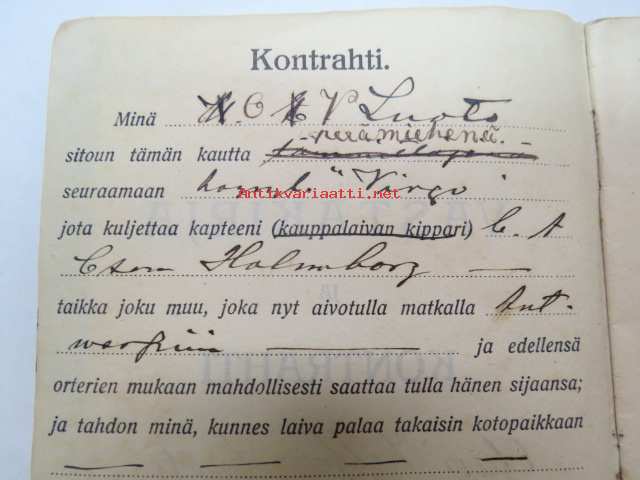 Kontrahti.
Minä K. O. K V Luoto
perämiehenä
sitoun tämän kautta
seuraamaan "Virgo"
Antikvariaatti.net
jota kuljettaa kapteeni (kauppalaivan kippari) C. A
Holmborg —
taikka joku muu, joka nyt aivotulla matkalla Ant-
werpiin — ja edellensä
orterien mukaan mahdollisesti saattaa tulla hänen sijaansa;
ja tahdon minä, kunnes laiva palaa takaisin kotopaikkaan
KONTRAHTI